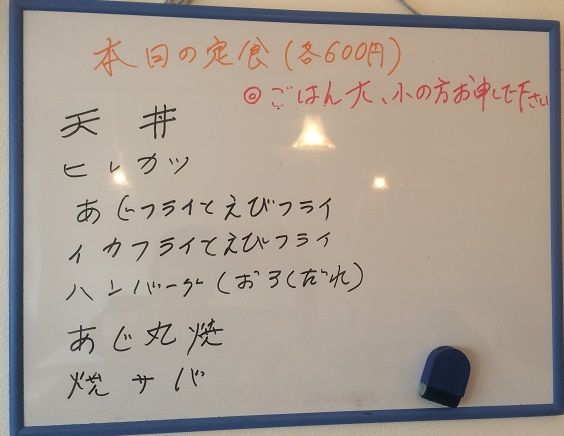 本日の定食(各600円)
◎ごはん大、小の方お申し下さい
天丼
ヒレカツ
あじフライとえびフライ
イカフライとえびフライ
ハンバーグ(おろしだれ)
あじ丸焼
焼サバ